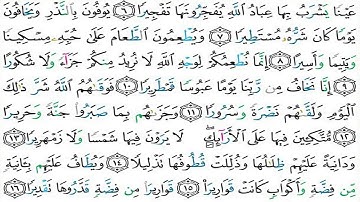 عَيْنًا يَشْرَبُ بِهَا عِبَادُ ٱللَّهِ يُفَجِّرُونَهَا تَفْجِيرًا ٦ يُوفُونَ بِٱلنَّذْرِ وَيَخَافُونَ
يَوْمًا كَانَ شَرُّهُۥ مُسْتَطِيرًا ٧ وَيُطْعِمُونَ ٱلطَّعَامَ عَلَىٰ حُبِّهِۦ مِسْكِينًا
وَيَتِيمًا وَأَسِيرًا ٨ إِنَّمَا نُطْعِمُكُمْ لِوَجْهِ ٱللَّهِ لَا نُرِيدُ مِنكُمْ جَزَآءً وَلَا شُكُورًا
٩ إِنَّا نَخَافُ مِن رَّبِّنَا يَوْمًا عَبُوسًا قَمْطَرِيرًا ١٠ فَوَقَىٰهُمُ ٱللَّهُ شَرَّ ذَٰلِكَ
ٱلْيَوْمِ وَلَقَّىٰهُمْ نَضْرَةً وَسُرُورًا ١١ وَجَزَىٰهُم بِمَا صَبَرُوا۟ جَنَّةً وَحَرِيرًا
١٢ مُّتَّكِـِٔينَ فِيهَا عَلَى ٱلْأَرَآئِكِ ۖ لَا يَرَوْنَ فِيهَا شَمْسًا وَلَا زَمْهَرِيرًا ١٣
وَدَانِيَةً عَلَيْهِمْ ظِلَٰلُهَا وَذُلِّلَتْ قُطُوفُهَا تَذْلِيلًا ١٤ وَيُطَافُ عَلَيْهِم بِـَٔانِيَةٍ
مِّن فِضَّةٍ وَأَكْوَابٍ كَانَتْ قَوَارِيرَا۠ ١٥ قَوَارِيرَا۟ مِن فِضَّةٍ قَدَّرُوهَا تَقْدِيرًا ١٦